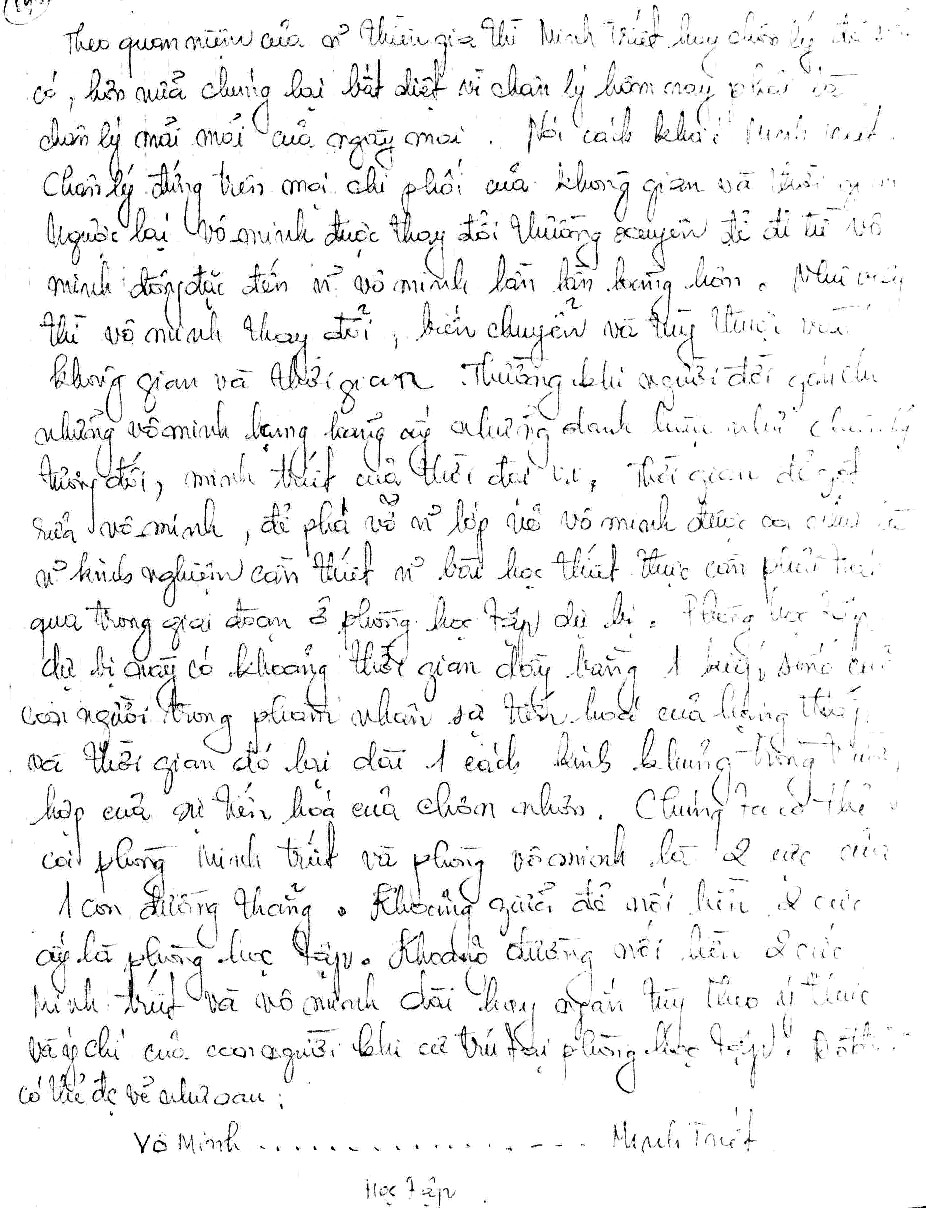 Theo quan niệm của n² thiền gia thì Minh Triết hay chân lý đã
có, hơn nữa chúng lại bất diệt vì chân lý hôm nay phải là
chân lý mãi mãi của ngày mai. Nói cách khác Minh triết
chân lý đứng trên mọi chi phối của không gian và thời gian
Ngược lại vô minh được thay đổi thường xuyên để đi từ vô
minh đông đặc đến n² vô minh lần lần loãng hơn. Như vậy
thì vô minh thay đổi, biến chuyển và tùy thuộc vào
không gian và thời gian. Thường khi người đời gán cho
những vô minh ấy những danh hiệu như chân lý
tương đối, minh triết của thời đại v.v, Thời gian để gột
rửa vô minh, để phá vỡ n² lớp vỏ vô minh được coi như là
n² kinh nghiệm cần thiết n² bài học thiết thực cần phải trải
qua trong giai đoạn ở phòng học tập dự bị. Phòng học tập
dự bị này có khoảng thời gian dày bằng 1 kiếp sống của
con người trong phạm nhân sự tiến hoá của hạng thấp
và thời gian đó lại dài 1 cách kinh khủng trong trường
hợp của sự tiến hoá của chơn nhơn. Chúng ta có thể
coi phòng Minh triết và phòng vô minh là 2 cực của
1 con đường thẳng. Khoảng giữa để nối liền 2 cực
ấy là phòng học tập. Khoảng đường nối liền 2 cực
Minh triết và vô minh dài hay ngắn tùy theo ý thức
và ý chí của con người khi cư trú tại phòng học tập.
có thể đc vẽ như sau:
Vô Minh .................. Minh Triết
Học Tập